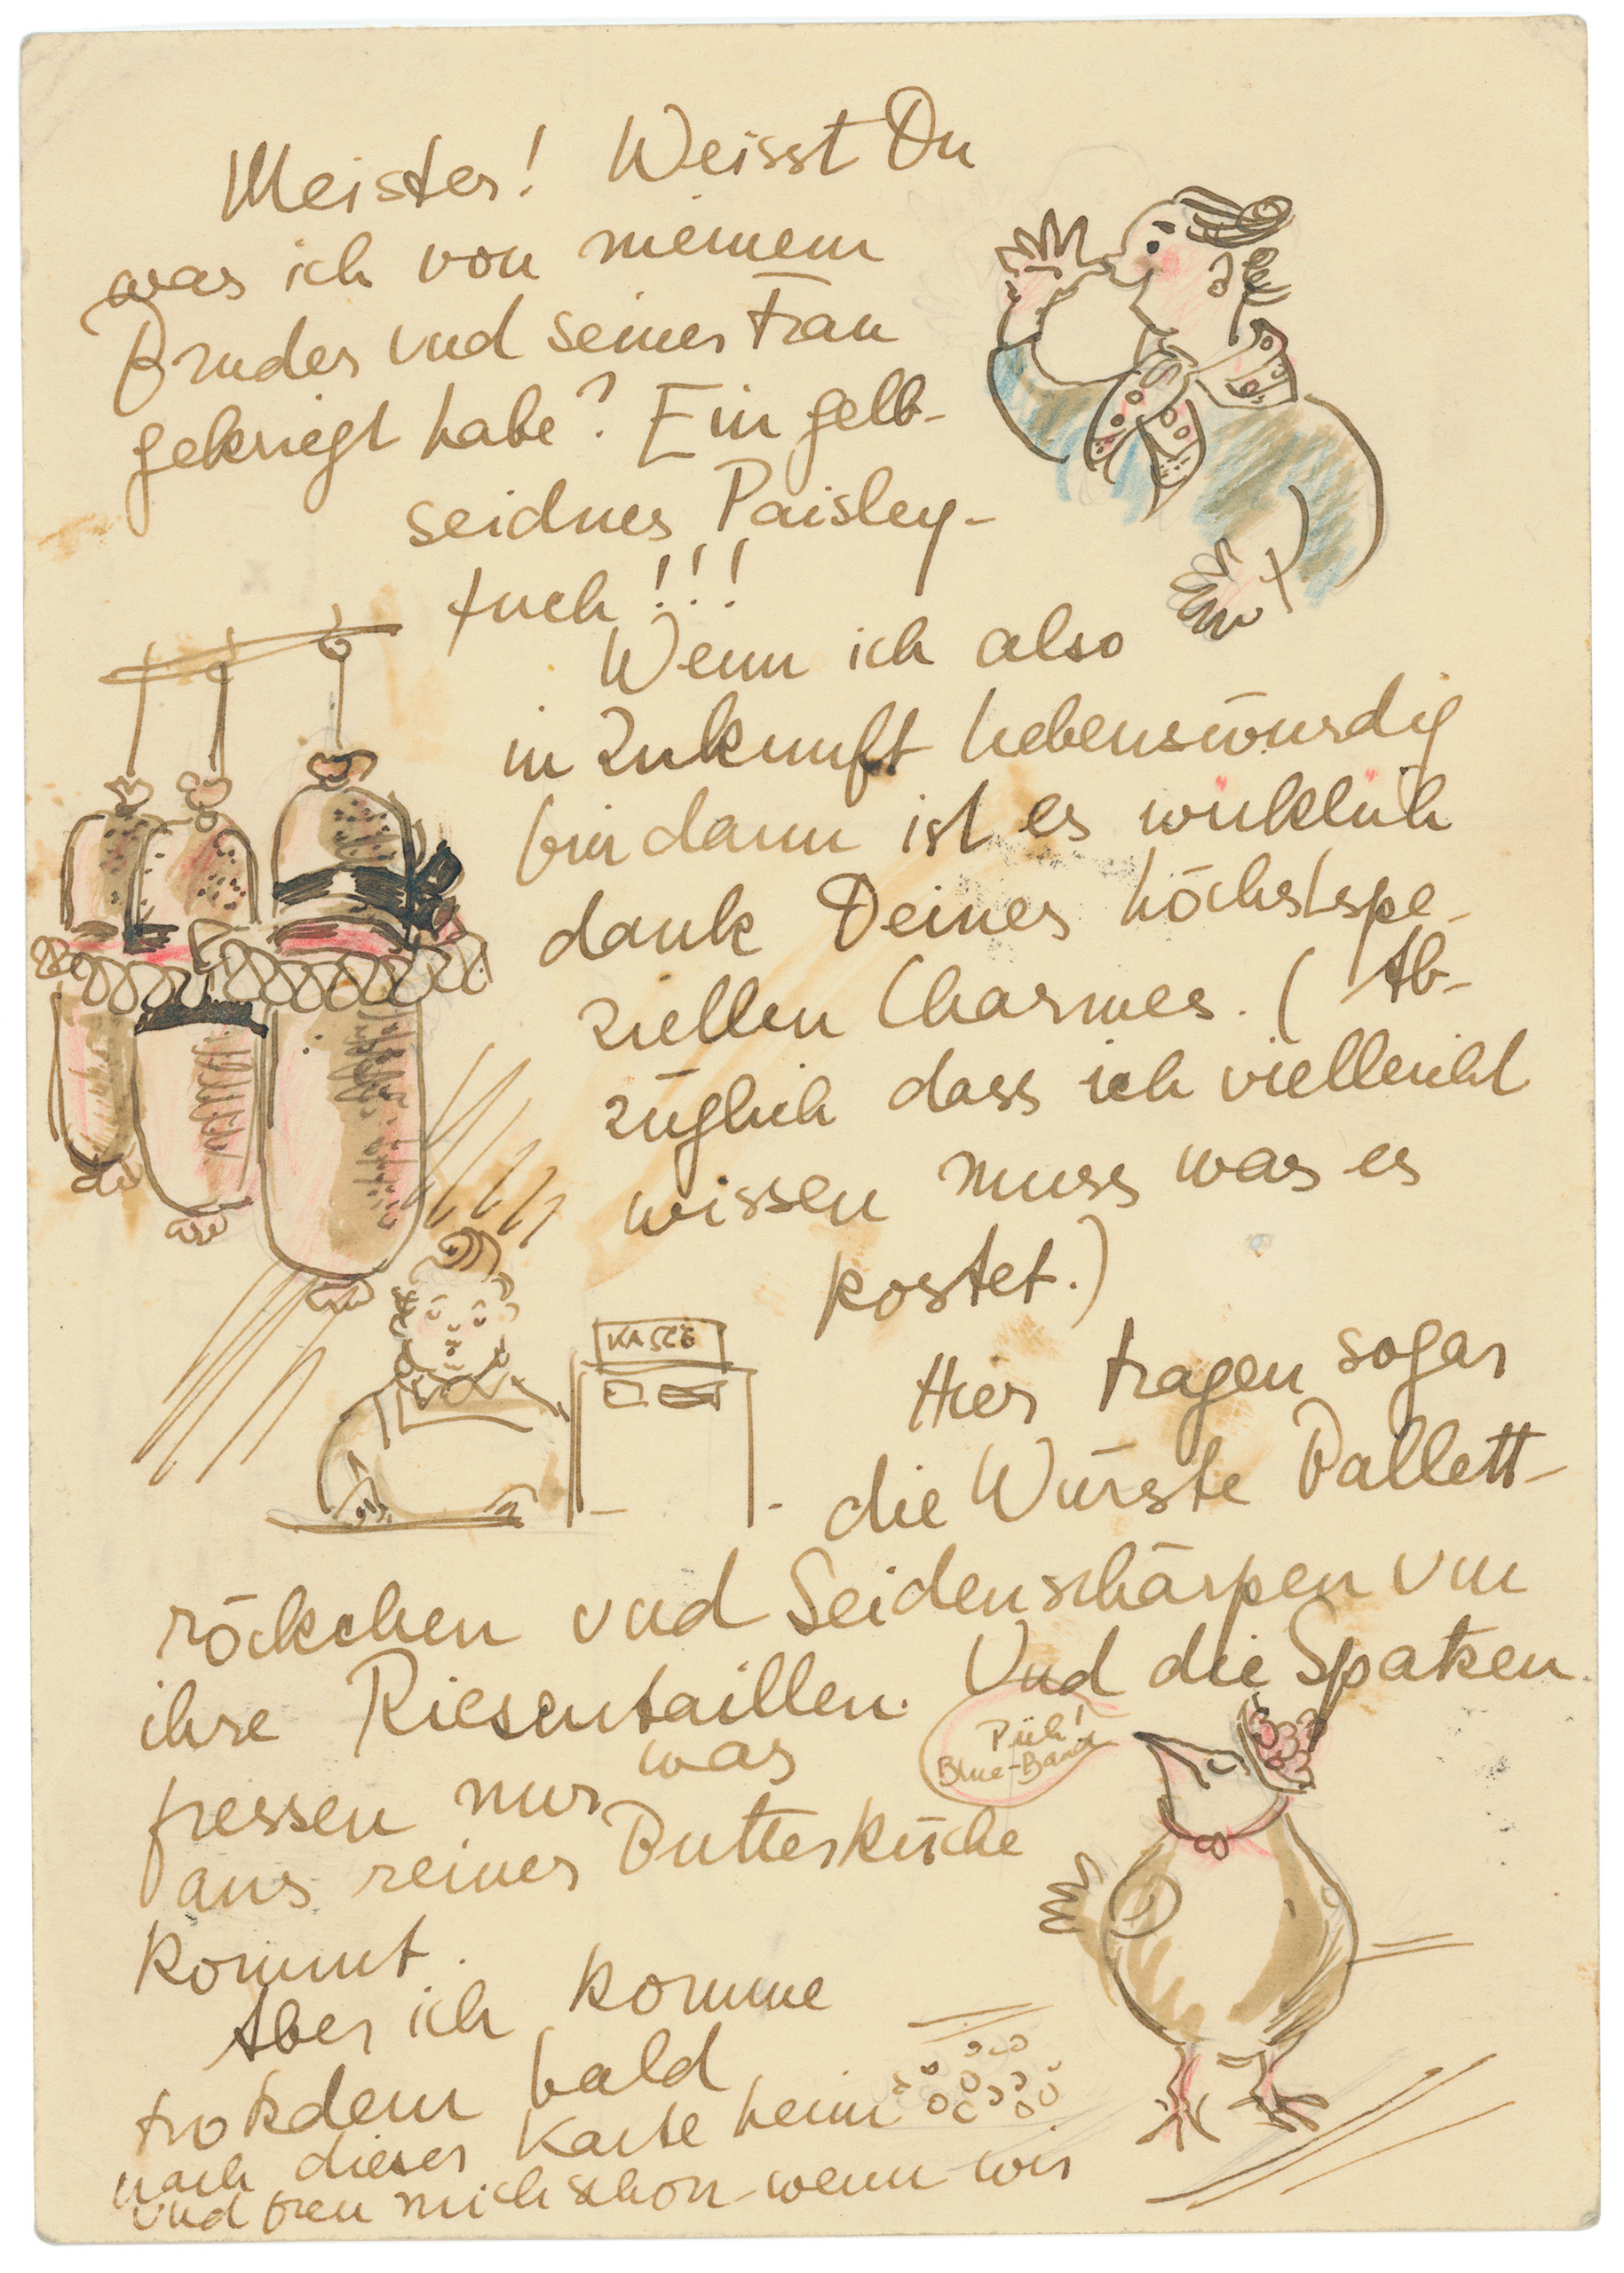 Meister! Weisst Du
was ich von meinem
Bruder und seiner Frau
gekriegt habe? Ein gelb-
seidnes Paisley-
tuch!!!
Wenn ich also
in Zukunft liebenswürdig
bin dann ist es wirklich
dank Deines höchstspe-
ziellen Charmes. (Ab-
züglich dass ich vielleicht
wissen muss was es
kostet.)
KASSE
Hier tragen sogar
die Würste Ballett-
röckchen und Seidenschärpen um
ihre Riesentaillen. Und die Spatzen
Püh!
Blue-Band
fressen nur was
aus reiner Butterküche
kommt.
Aber ich komme
trotzdem bald
nach dieser Karte heim
und freu mich schon wenn wir